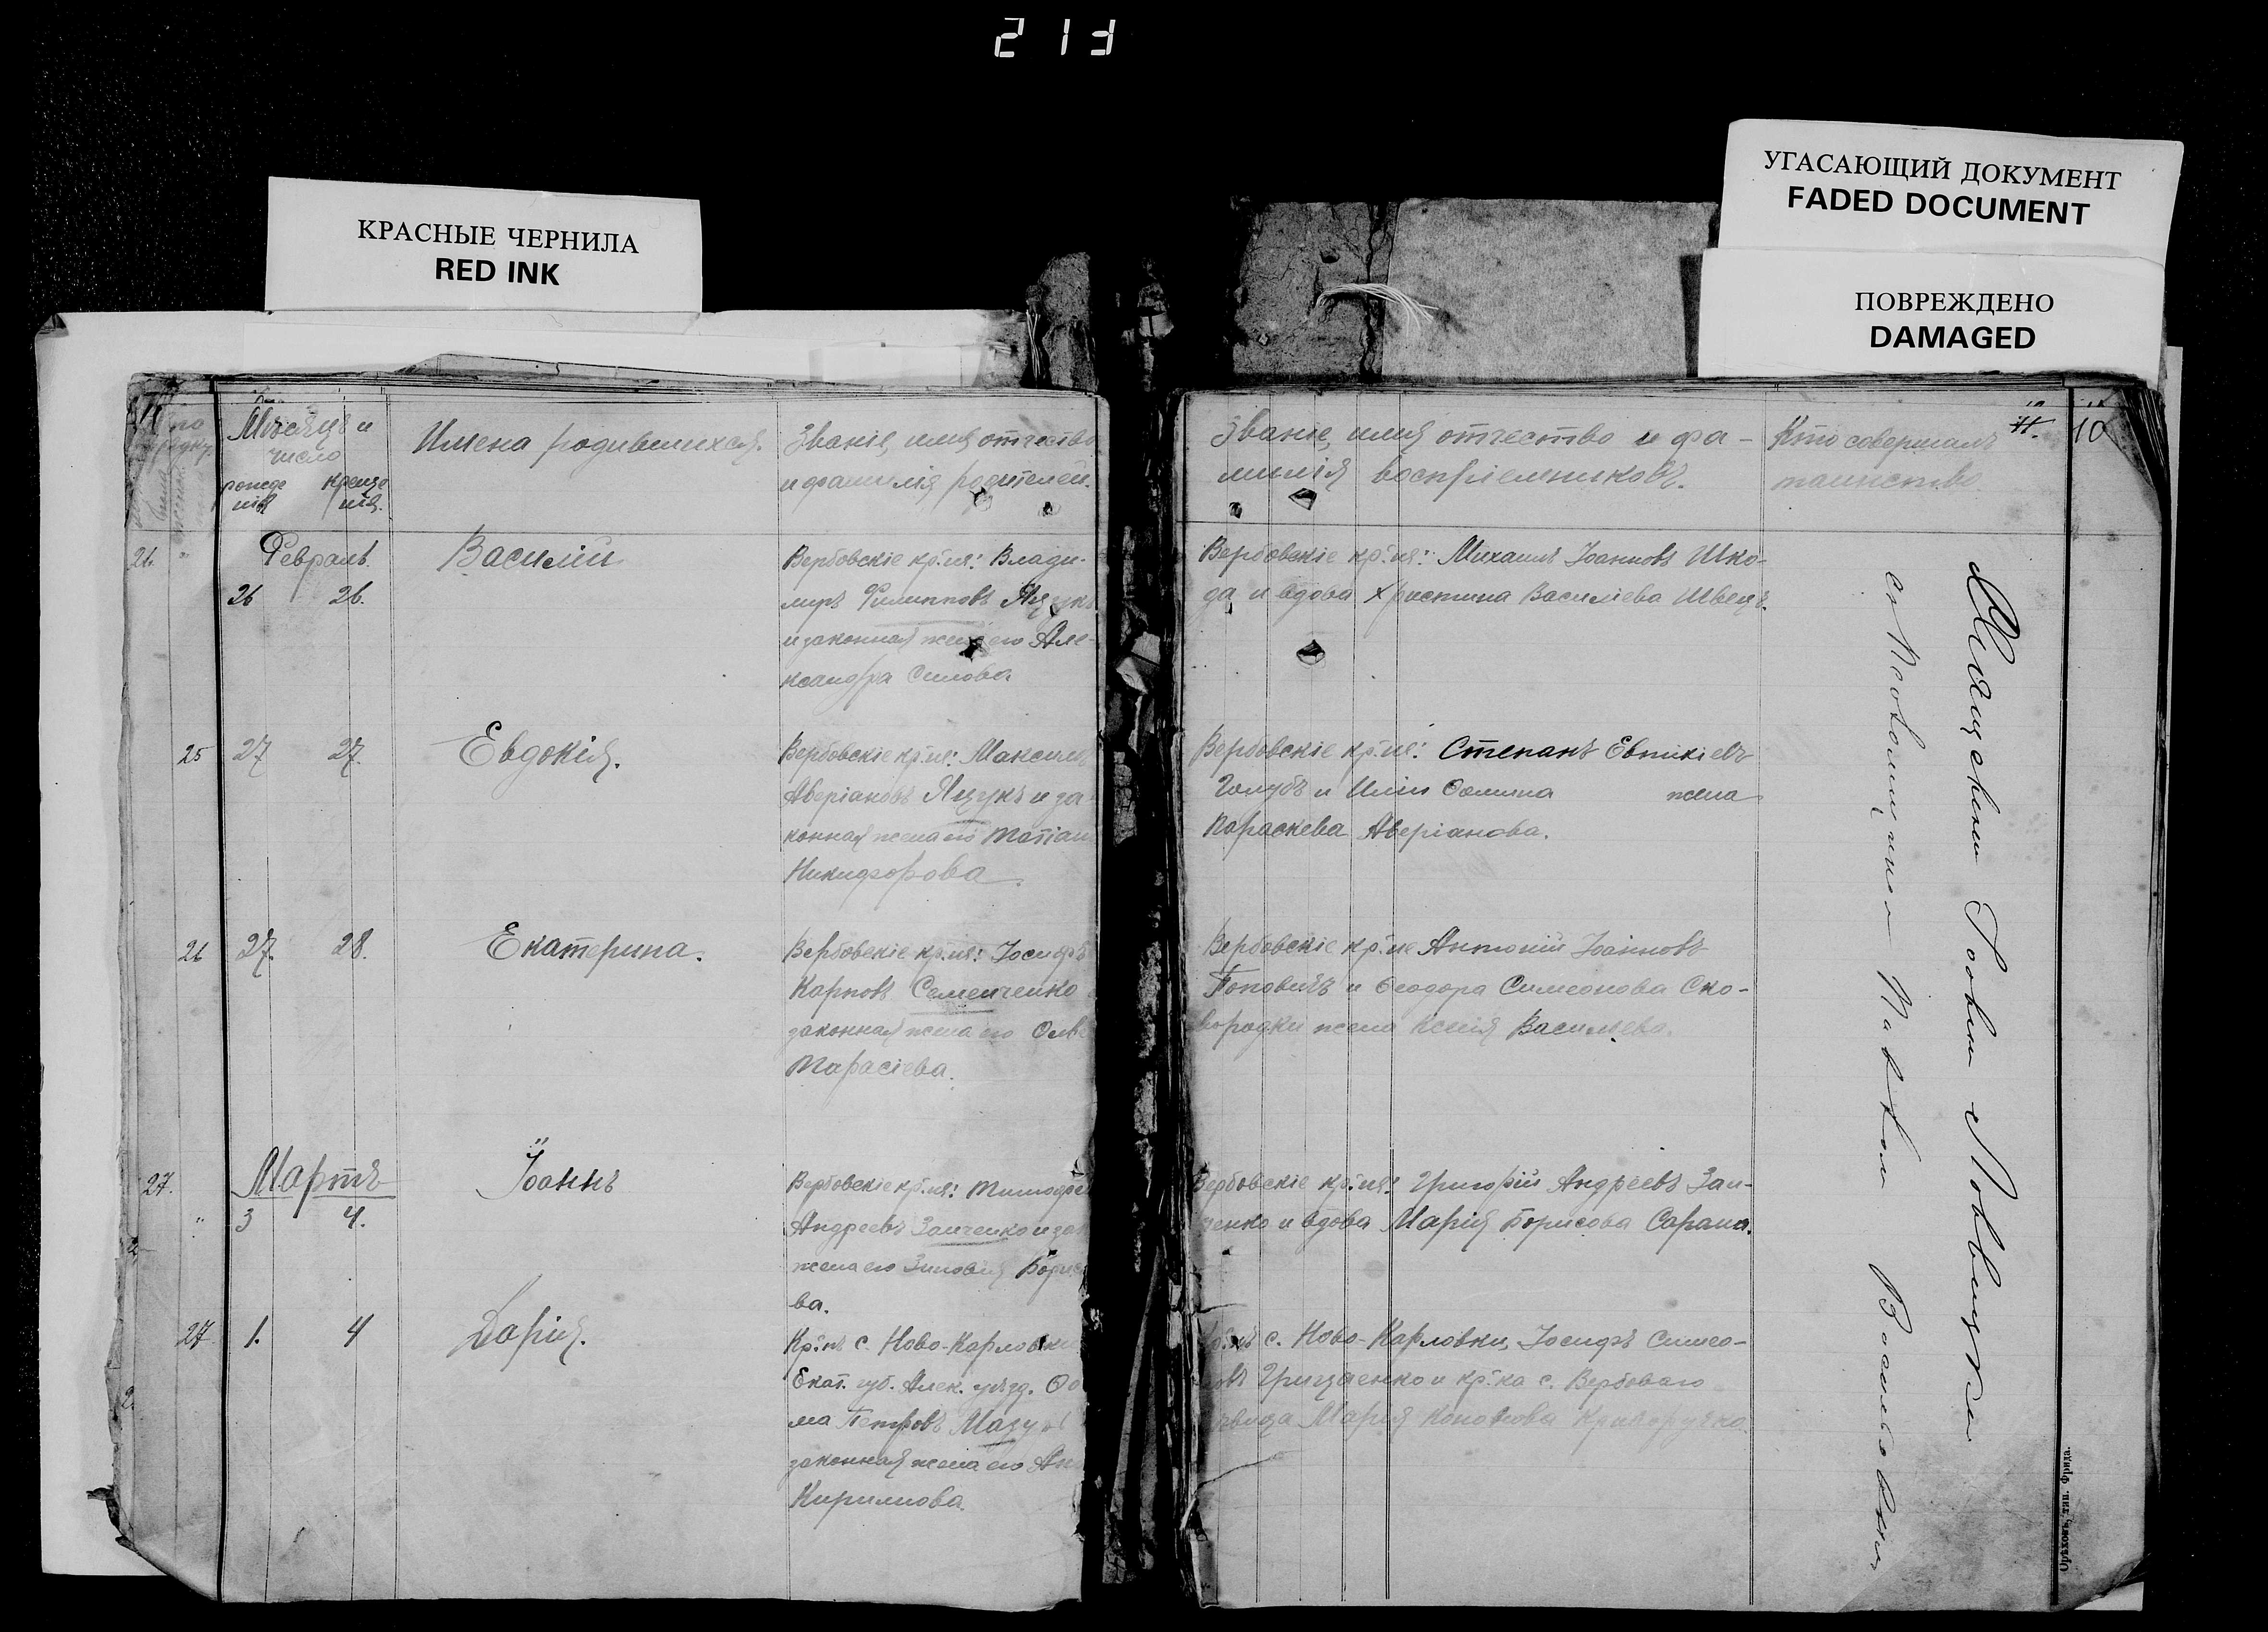 213
КРАСНЫЕ ЧЕРНИЛА
RED INK
УГАСАЮЩИЙ ДОКУМЕНТ
FADED DOCUMENT
ПОВРЕЖДЕНО
DAMAGED
Мѣсяцъ и
число
рожде креще
нія нія.
Имена родившихся.
Званіе, имя отчество
и фамилія родителей.
Февраль.
26 26.
Василій
Вербовскіе кр.не: Влади-
миръ Филипповъ Яцукъ
и законная жена его Але-
ксандра Силова
25 27 27.
Евдокія.
Вербовскіе кр.не: Максимъ
Аверіановъ Яцукъ и за-
конная жена его Татіан
Никифорова.
26 27. 28.
Екатерина.
Вербовскіе кр.не: Іосифъ
Карповъ Семенченко
законная жена его
Тарасіева.
27.
Мартъ
3 4.
Іоаннъ
Вербовскіе кр.не: Тимофе
Андреевъ Заиченко и за
жена его Зиновія Борис
ва.
27 1. 4
Дарія.
Кр.нъ с. Ново-Карловки
Екат. губ. Алек. уѣзд. Ѳо
ма Петровъ Мазу
законная жена его Ан
Кириллова.
Званіе, имя отчество и фа-
милія воспріемниковъ.
Кто совершалъ
таинство
11. 10
Вербовскіе кр.не: Михаилъ Іоанновъ Шко-
да и вдова Христина Василіева Швецъ.
Вербовскіе кр.не: Степанъ Евтихіевъ
Голубъ и Ѳомина жена
Параскева Аверіанова.
Вербовскіе кр.не Антоній Іоанновъ
Поповичъ и Ѳеодора Симеонова Ско-
вородки жена Ксенія Васильева.
Вербовскіе кр.не: Григорій Андреевъ Заи-
ченко и вдова Марія Борисова Сарана.
с. Ново-Карловки, Іосифъ Симео-
Грищенко и кр.ка с. Вербоваго
Марія Криворучко.
Священникъ
съ Псаломщикомъ Павломъ
Орѣховъ, тип. Фрида.